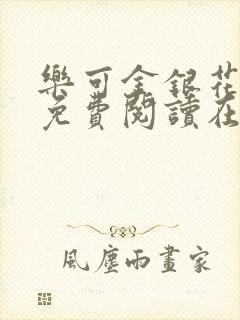 樂可金銀花
免費閱讀在
風塵雨畫家